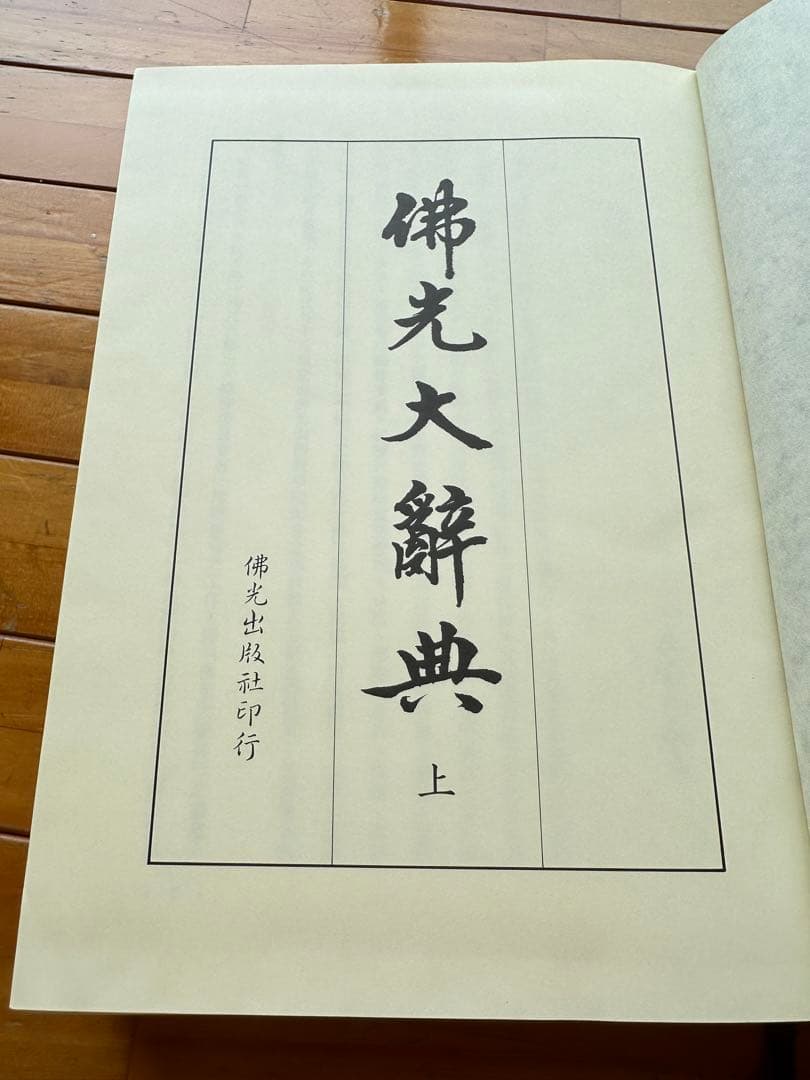 佛光大辭典 上
佛光出版社印行